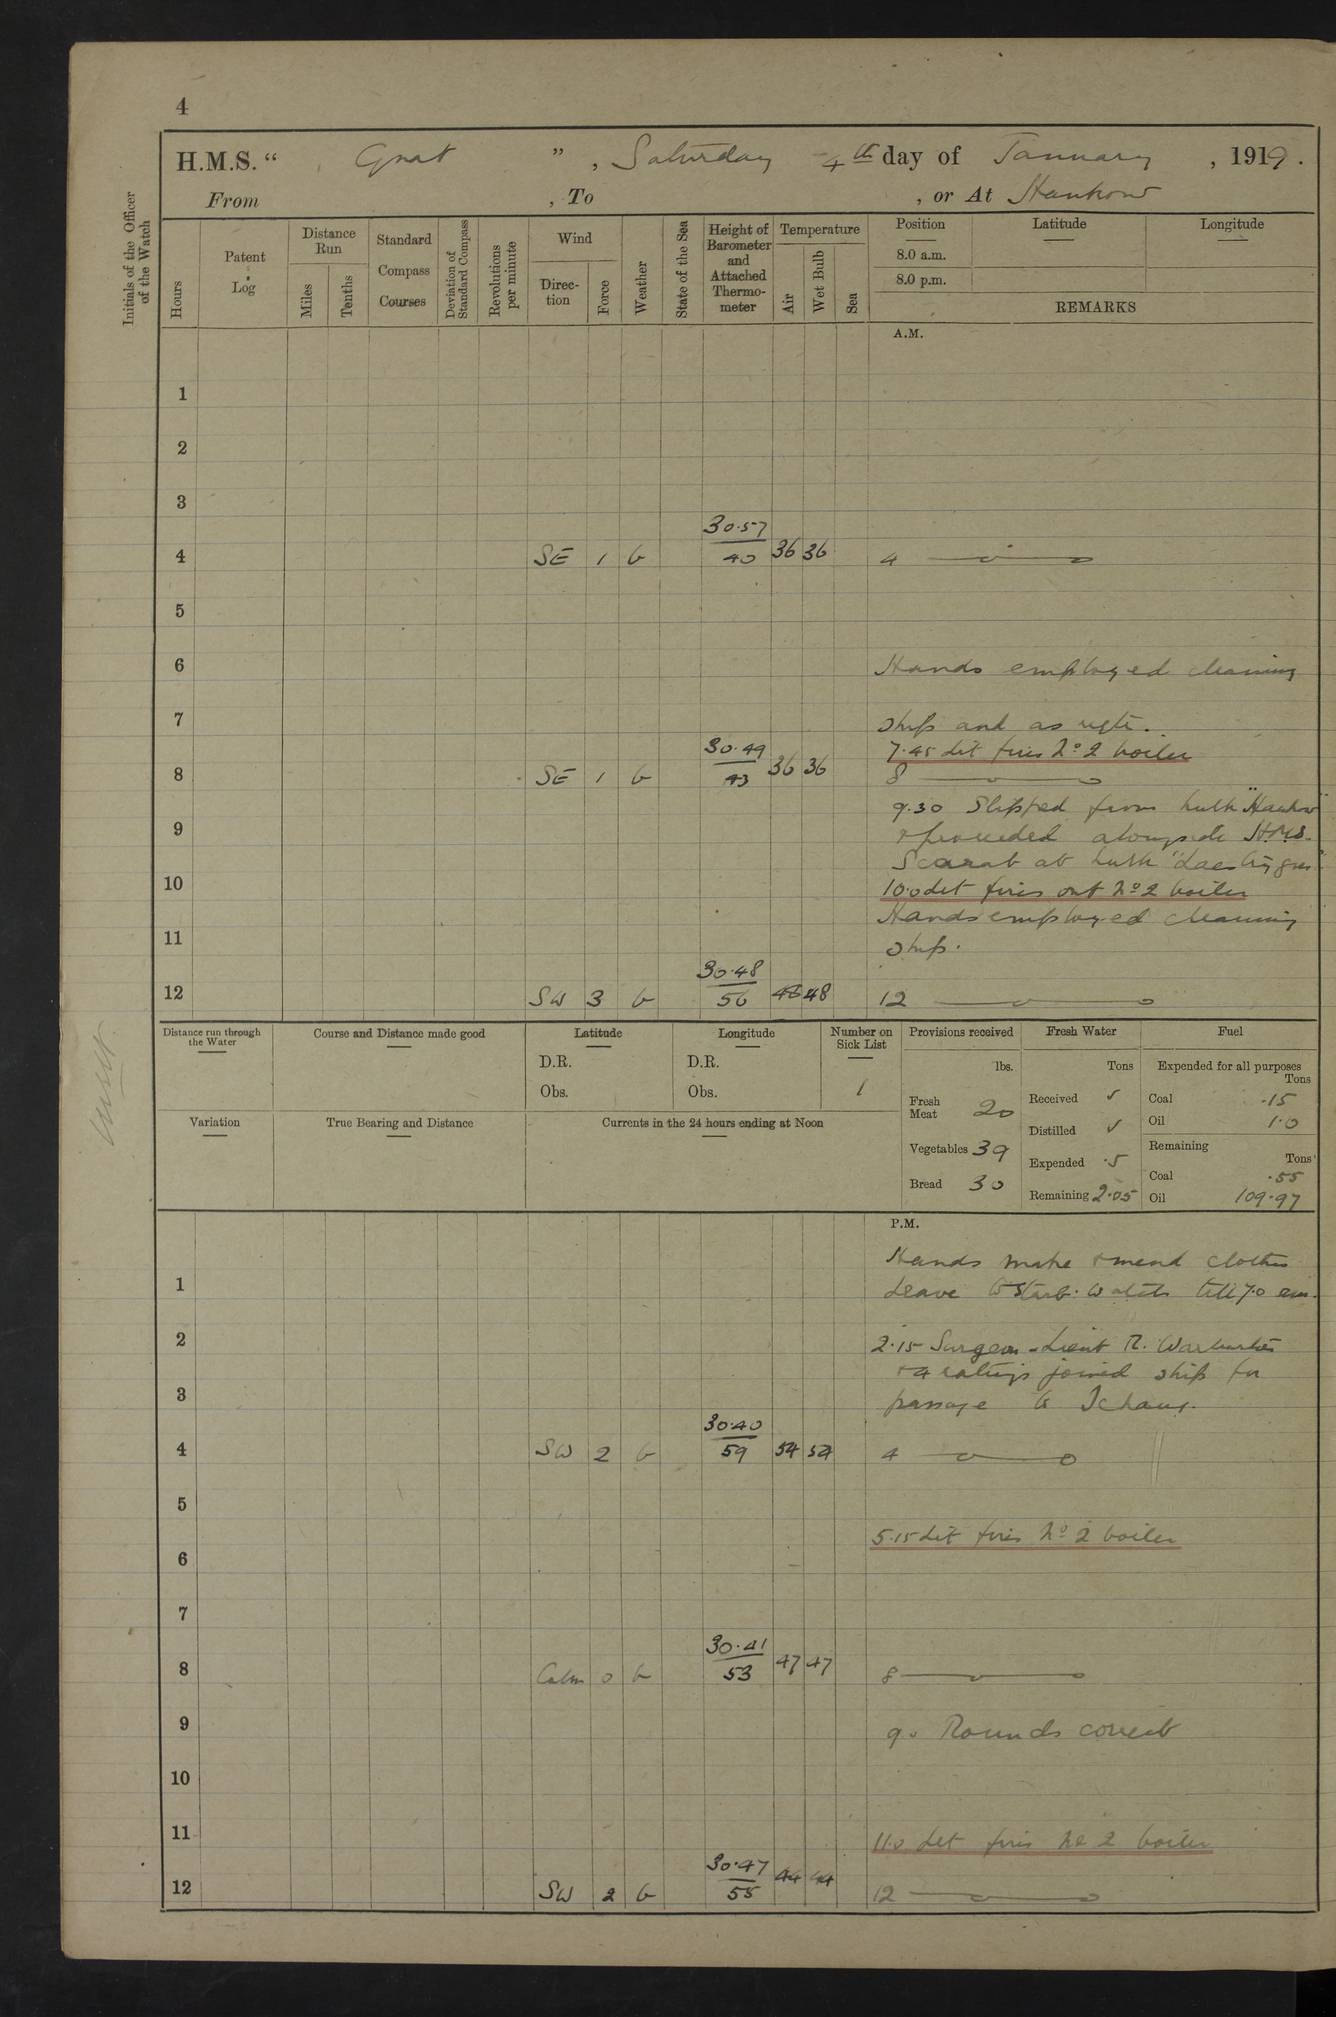 4
H.M.S. “ Gnat ” , Saturday 4th day of January , 1919 .
From , To , or At Hankow
Initials of the Officer of the Watch
Hours
Patent Log
Distance Run
Miles
Tenths
Standard Compass Courses
Deviation of Standard Compass
Revolutions per minute
Wind
Direction
Force
Weather
State of the Sea
Height of Barometer and Attached Thermometer
Temperature
Air
Wet Bulb
Sea
Position
Latitude
Longitude
8.0 a.m.
8.0 p.m.
REMARKS
A.M.
1
2
3
4 SE 1 b 30.57 40 36 36 4
5
6 Hands employed cleaning
7 ship and as reqte.
7.45 Lit fires No 2 boiler
8 SE 1 b 30.49 43 36 36 8
9.30 Slipped from hulk "Hankow"
9 & proceeded alongside H.M.S.
Scarab at hulk
10 10.0 Let fires out No 2 boiler
Hands employed cleaning
11 ship.
12 SW 3 b 30.48 56 48 48 12
Distance run through the Water
Course and Distance made good
Latitude
D.R.
Obs.
Longitude
D.R.
Obs.
Number on Sick List
1
Variation
True Bearing and Distance
Currents in the 24 hours ending at Noon
Provisions received
lbs.
Fresh Meat 20
Vegetables 39
Bread 30
Fresh Water
Tons
Received ✓
Distilled ✓
Expended .5
Remaining 2.05
Fuel
Expended for all purposes
Tons
Coal .15
Oil 1.0
Remaining
Tons
Coal .55
Oil 109.97
P.M.
Hands make & mend clothes
1 Leave to Starb. watch till 7.0 am.
2 2.15 Surgeon-Lieut R. Warburton
& 4 ratings joined ship for
3 passage to Ichang.
4 SW 2 b 30.40 59 54 54 4
5
5.15 Lit fires No 2 boiler
6
7
8 Calm 0 b 30.41 53 47 47 8
9 9.0 Rounds correct
10
11 11.0 Let fires No 2 boiler
12 SW 2 b 30.47 55 44 44 12